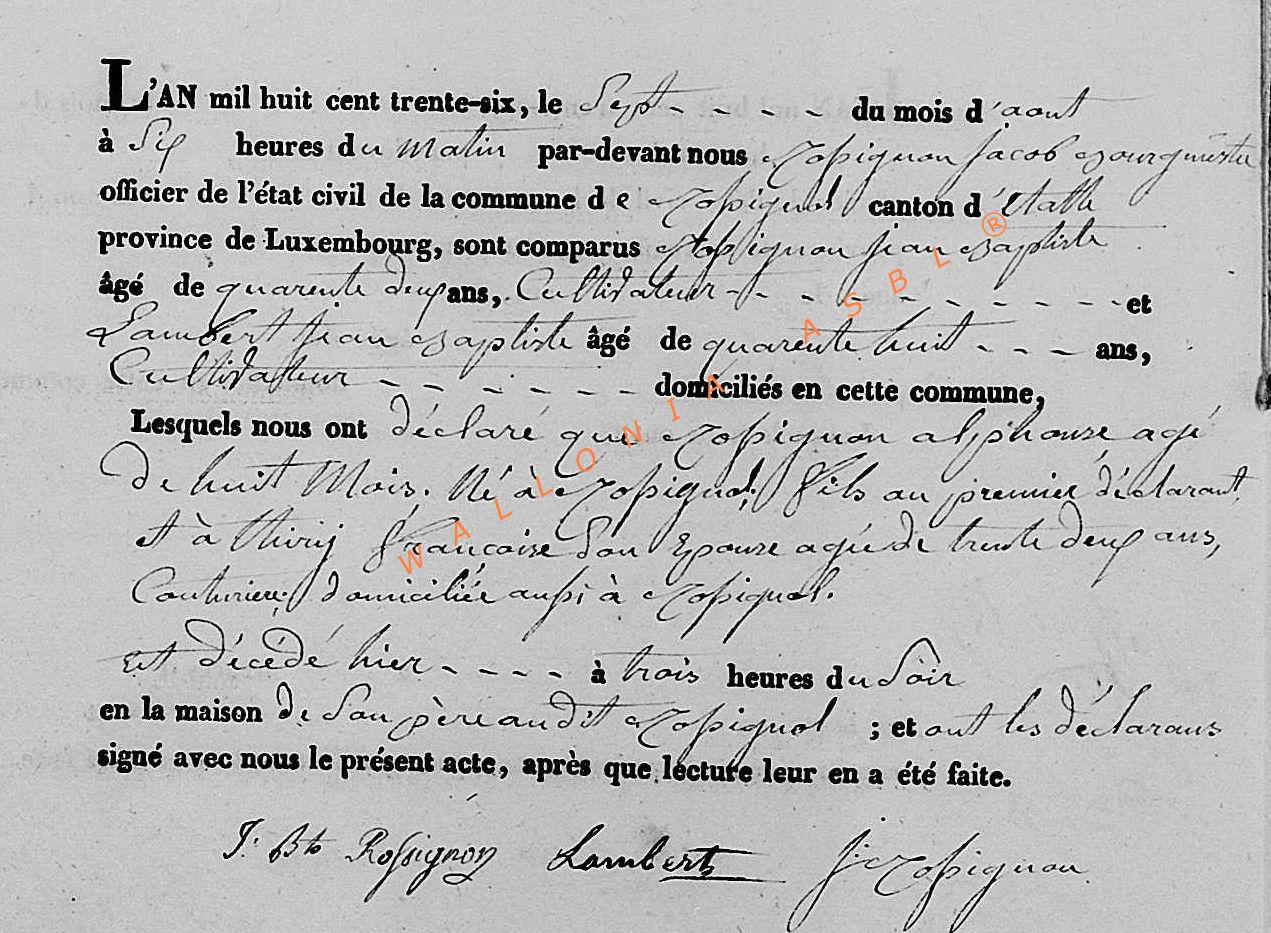 L'AN mil huit cent trente-six, le Sept - - - - du mois d'aout
à Six heures du Matin par-devant nous Rossignon Jacob Bourgmestre
officier de l'état civil de la commune de Rossignol canton d'Etalle
province de Luxembourg, sont comparus Rossignon Jean Baptiste
âgé de quarente deux ans, Cultivateur - - - - - - - - - et
Lambert Jean Baptiste âgé de quarente huit - - - ans,
Cultivateur - - - - - - domiciliés en cette commune,
Lesquels nous ont déclaré que Rossignon alphonse agé
de huit Mois. Né à Rossignol; fils au premier déclarant
et à Thiry Françoise Son Epouse agée de trente deux ans,
Couturiere; domiciliée aussi à Rossignol.
est décédé hier - - - - à trois heures du Soir
en la maison de Son père audit Rossignol ; et ont les déclarans
signé avec nous le présent acte, après que lecture leur en a été faite.
J: Bte Rossignon Lambert J: Rossignon
WALLONIA ASBL ®